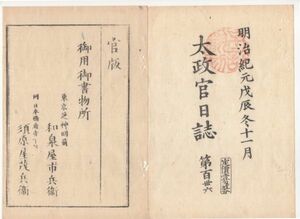 明治紀元戊辰冬十一月
太政官日誌
第百卅六
官版
御用御書物所
東京芝神明前
和泉屋市兵衛
同日本橋南壱丁目
須原屋茂兵衛